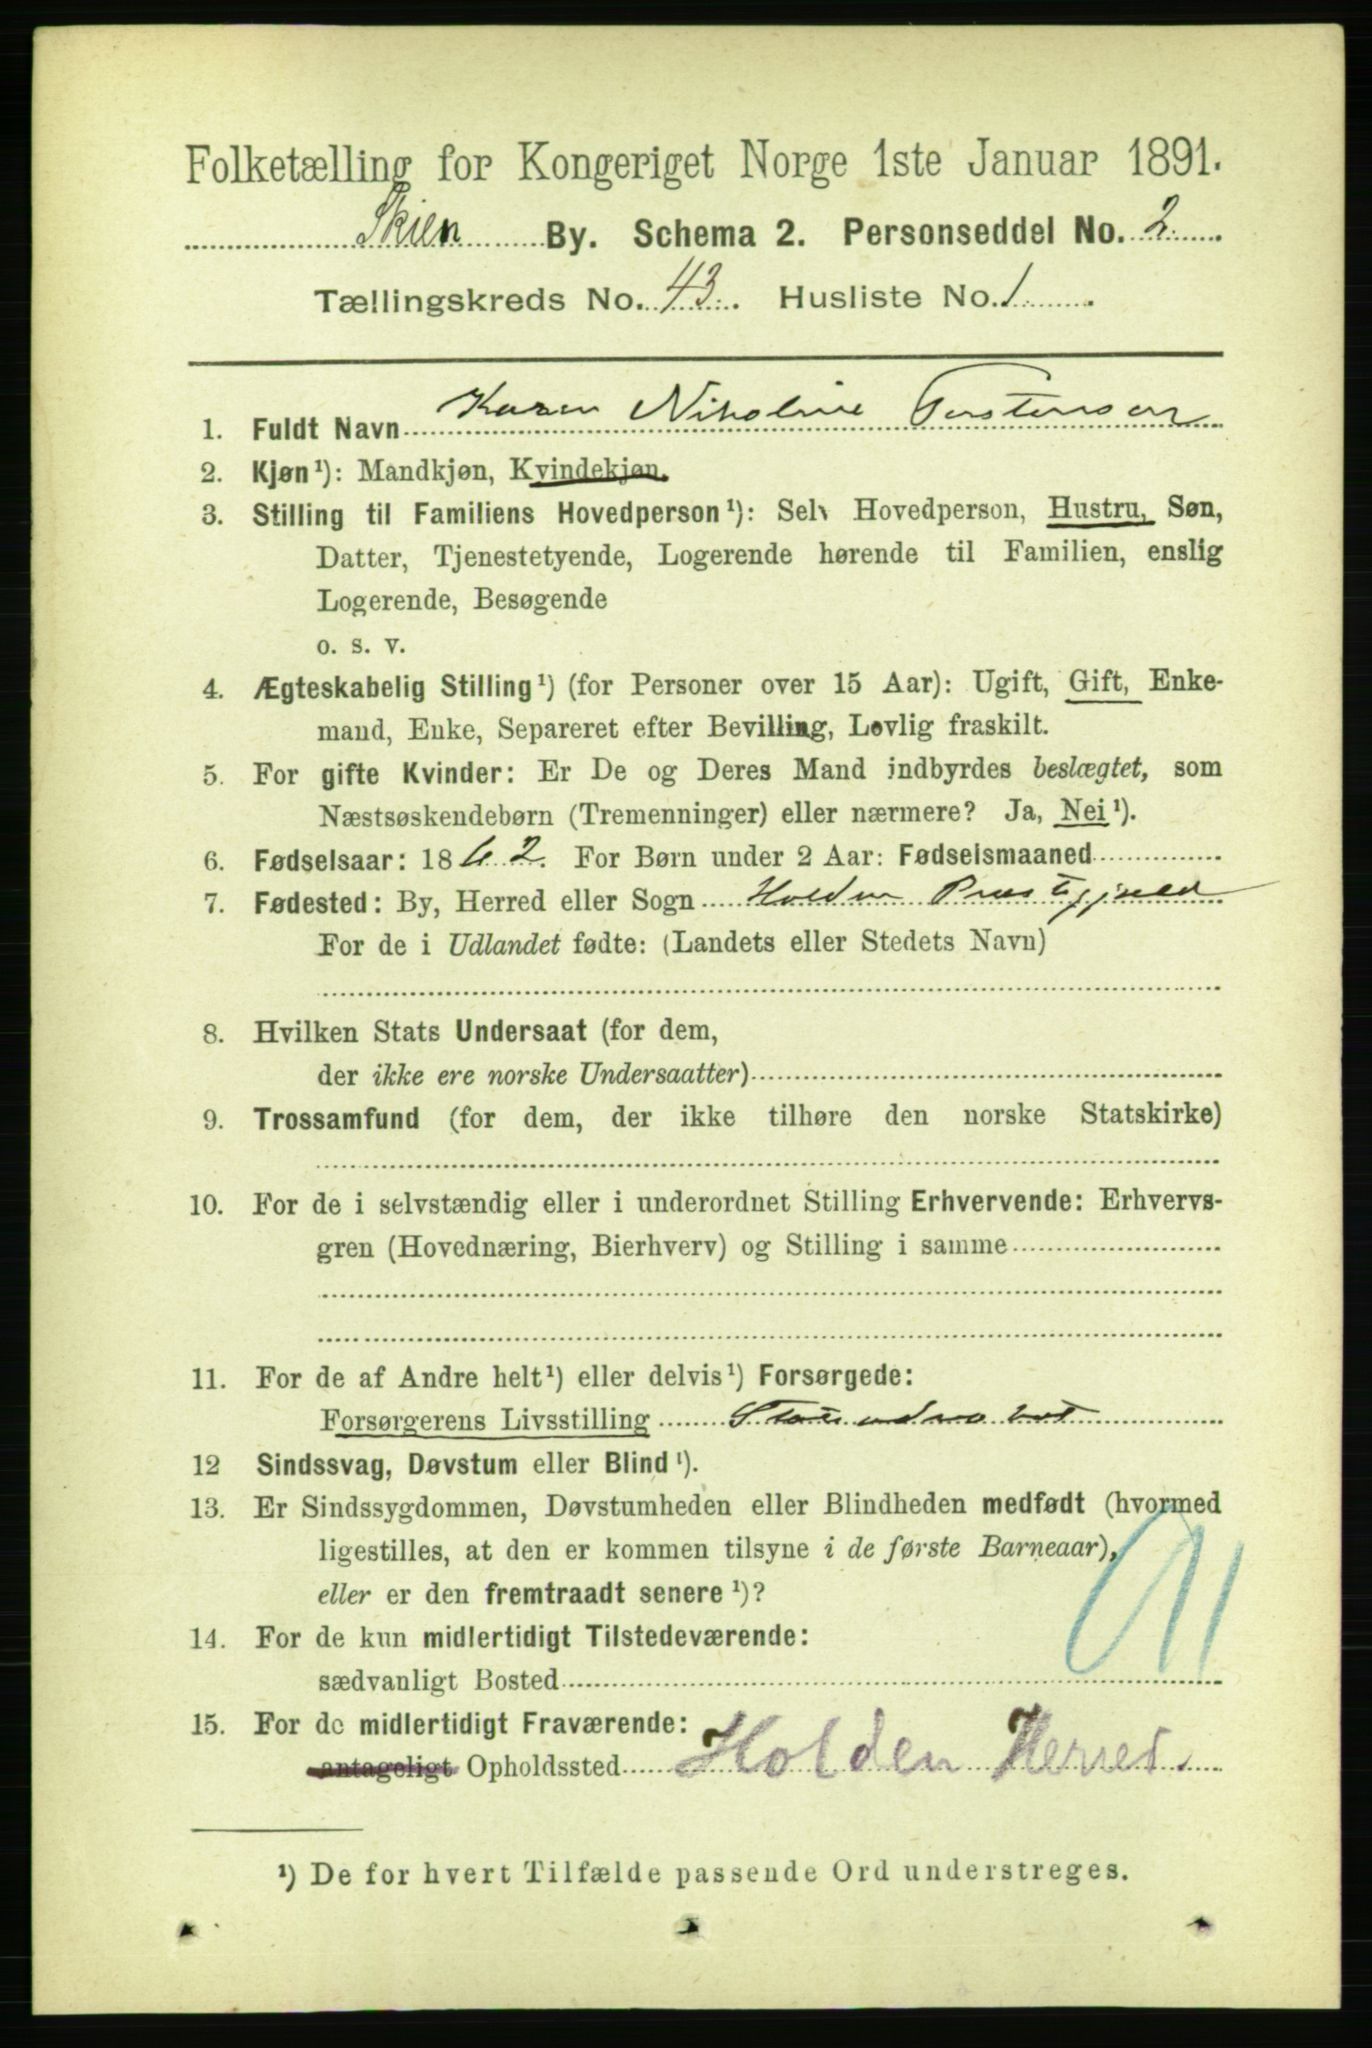 Folketælling for Kongeriget Norge 1ste Januar 1891.
Skien By. Schema 2. Personseddel No. 2
Tællingskreds No. 43. Husliste No. 1
1. Fuldt Navn Karen Nikoline Torstensen
2. Kjøn¹): Mandkjøn, Kvindekjøn.
3. Stilling til Familiens Hovedperson¹): Selv Hovedperson, Hustru, Søn,
Datter, Tjenestetyende, Logerende hørende til Familien, enslig
Logerende, Besøgende
o. s. v.
4. Ægteskabelig Stilling¹) (for Personer over 15 Aar): Ugift, Gift, Enke-
mand, Enke, Separeret efter Bevilling, Lovlig fraskilt.
5. For gifte Kvinder: Er De og Deres Mand indbyrdes beslægtet, som
Næstsøskendebørn (Tremenninger) eller nærmere? Ja, Nei¹).
6. Fødselsaar: 1862. For Børn under 2 Aar: Fødselsmaaned
7. Fødested: By, Herred eller Sogn Holden Præstegjeld
For de i Udlandet fødte: (Landets eller Stedets Navn)
8. Hvilken Stats Undersaat (for dem,
der ikke ere norske Undersaatter)
9. Trossamfund (for dem, der ikke tilhøre den norske Statskirke)
10. For de i selvstændig eller i underordnet Stilling Erhvervende: Erhvervs-
gren (Hovednæring, Bierhverv) og Stilling i samme
11. For de af Andre helt¹) eller delvis¹) Forsørgede:
Forsørgerens Livsstilling
12 Sindssvag, Døvstum eller Blind¹).
13. Er Sindssygdommen, Døvstumheden eller Blindheden medfødt (hvormed
ligestilles, at den er kommen tilsyne i de første Barneaar),
eller er den fremtraadt senere¹)?
14. For de kun midlertidigt Tilstedeværende:
sædvanligt Bosted
15. For de midlertidigt Fraværende:
antageligt Opholdssted Holden Herred
¹) De for hvert Tilfælde passende Ord understreges.